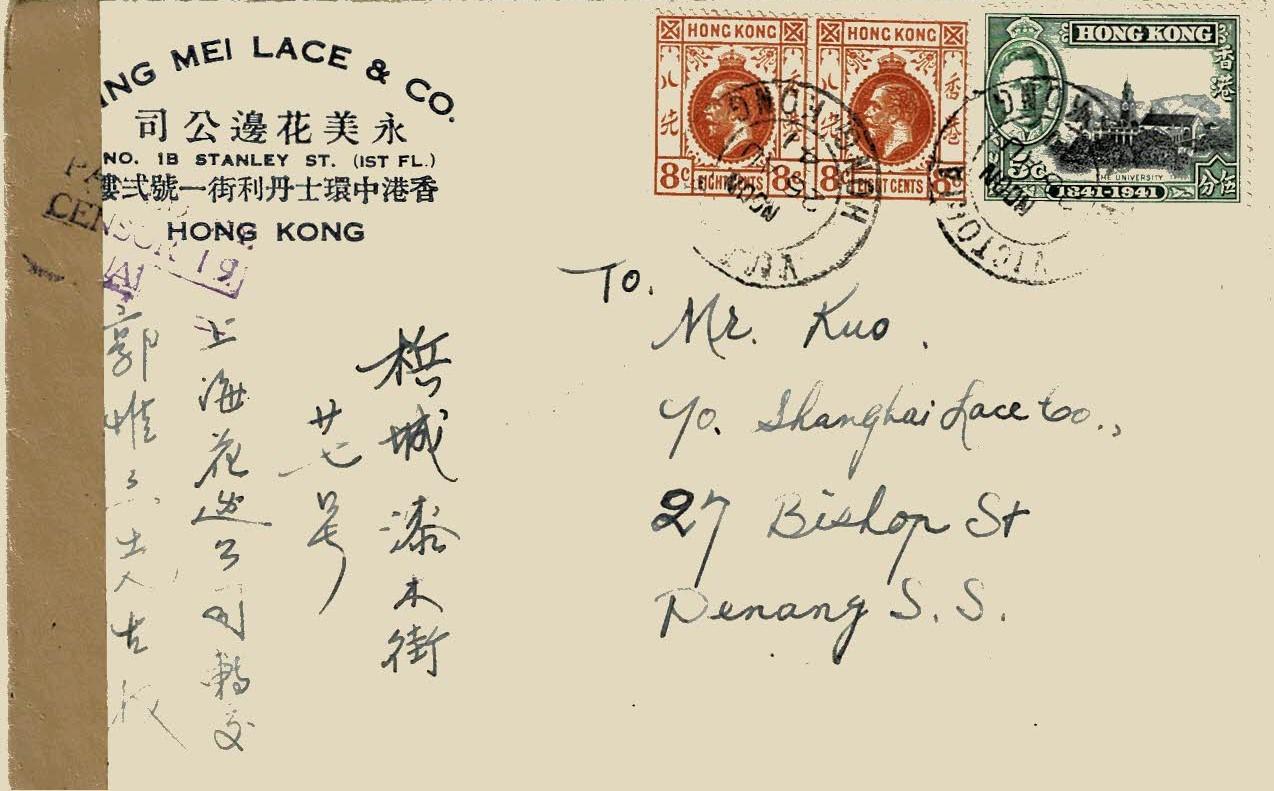 ING MEI LACE & CO.
永美花邊公司
NO. 1B STANLEY ST. (1ST FL.)
香港中環士丹利街一號弍樓
HONG KONG
CENSOR 19
HONG KONG
八先
8c EIGHT CENTS 8
HONG KONG
香港
8 EIGHT CENTS 8
HONG KONG
香港
5c
THE UNIVERSITY
1841-1941
伍分
VICTORIA HONG KONG
NOON
To.
Mr. Kuo.
c/o. Shanghai Lace Co.,
27 Bishop St
Penang S. S.
梹城漆木街
廿七号
上海花边公司轉交
郭惟
收